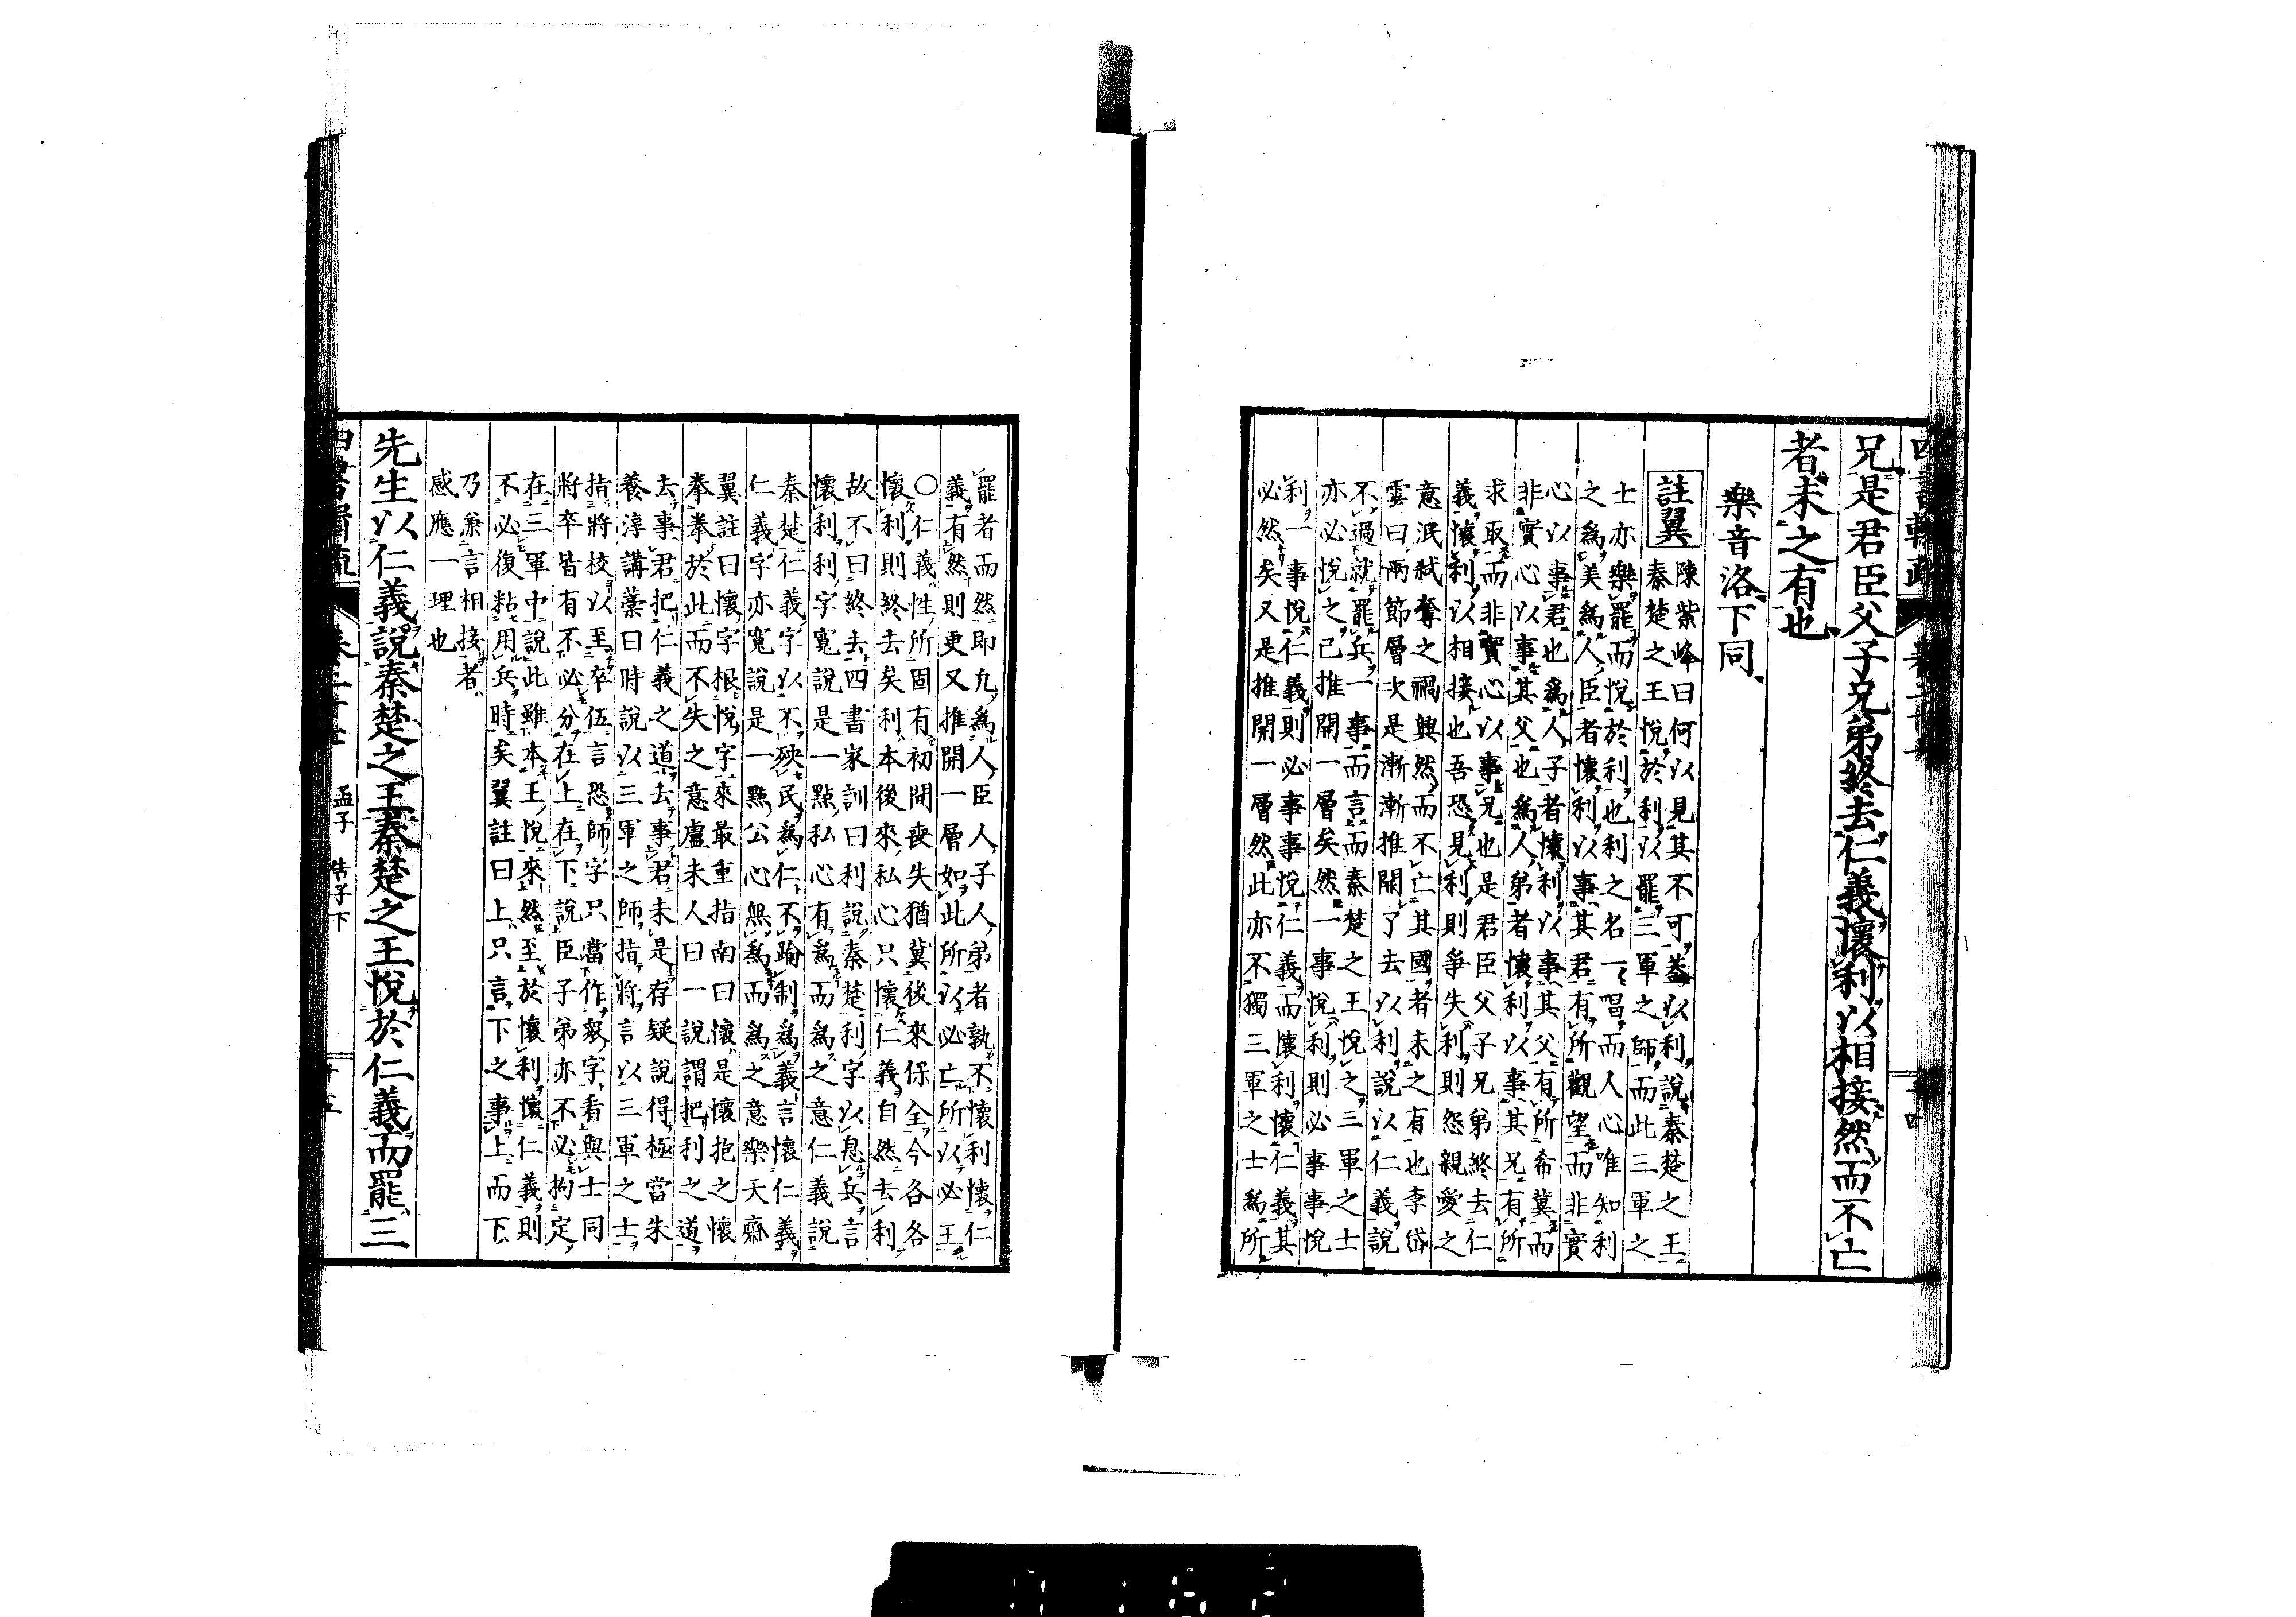 兄是君臣父子兄弟終去仁義懷利以相接然而不亡
者未之有也
樂音洛下同
註翼
陳紫峰曰何以見其不可蓋以利說秦楚之王
秦楚之王悅於利以罷三軍之師而此三軍之
士亦樂罷而悅於利也利之名一唱而人心唯知利
之爲美爲人臣者懷利以事其君有所觀望而非實
心以事君也爲人子者懷利以事其父有所希冀而
非實心以事其父也爲人弟者懷利以事其兄有所
求取而非實心以事兄也是君臣父子兄弟終去仁
義懷利以相接也吾恐見利則爭失利則怨親愛之
意泯弒奪之禍興然而不亡其國者未之有也李岱
雲曰兩節層次是漸漸推開了去以利說以仁義說
不過就罷兵一事而言而秦楚之王悅之三軍之士
亦必悅之已推開一層矣然一事悅利則必事事悅
利一事悅仁義則必事事悅仁義而懷利懷仁義其
必然矣又是推開一層然此亦不獨三軍之士爲所
罷者而然即凡爲人臣人子人弟者孰不懷利懷仁
義有然則更又推開一層如此所以必亡所以必王
○仁義性所固有初間喪失猶冀後來保全今各各
懷利則終去矣利本後來私心只懷仁義自然去利
故不曰終去四書家訓曰利說秦楚利字以息兵言
懷利利字寬說是一點私心有爲而爲之意仁義說
秦楚仁義字以不殃民爲仁不踰制爲義言懷仁義
仁義字亦寬說是一點公心無爲而爲之意樂天齋
翼註曰懷字根悅字來最重指南曰懷是懷抱之懷
拳拳於此而不失之意盧未人曰一說謂把利之道
去事君把仁義之道去事君未是存疑說得極當朱
養淳講藁曰時說以三軍之師指將言以三軍之士
指將校以至卒伍言恐師字只當作衆字看與士同
將卒皆有不必分在上在下說臣子弟亦不必拘定
在三軍中說此雖本王悅來然至於懷利懷仁義則
不必復粘用兵時矣翼註曰上只言下之事上而下
乃兼言相接者
感應一理也
先生以仁義說秦楚之王秦楚之王悅於仁義而罷三
孟子 告子下